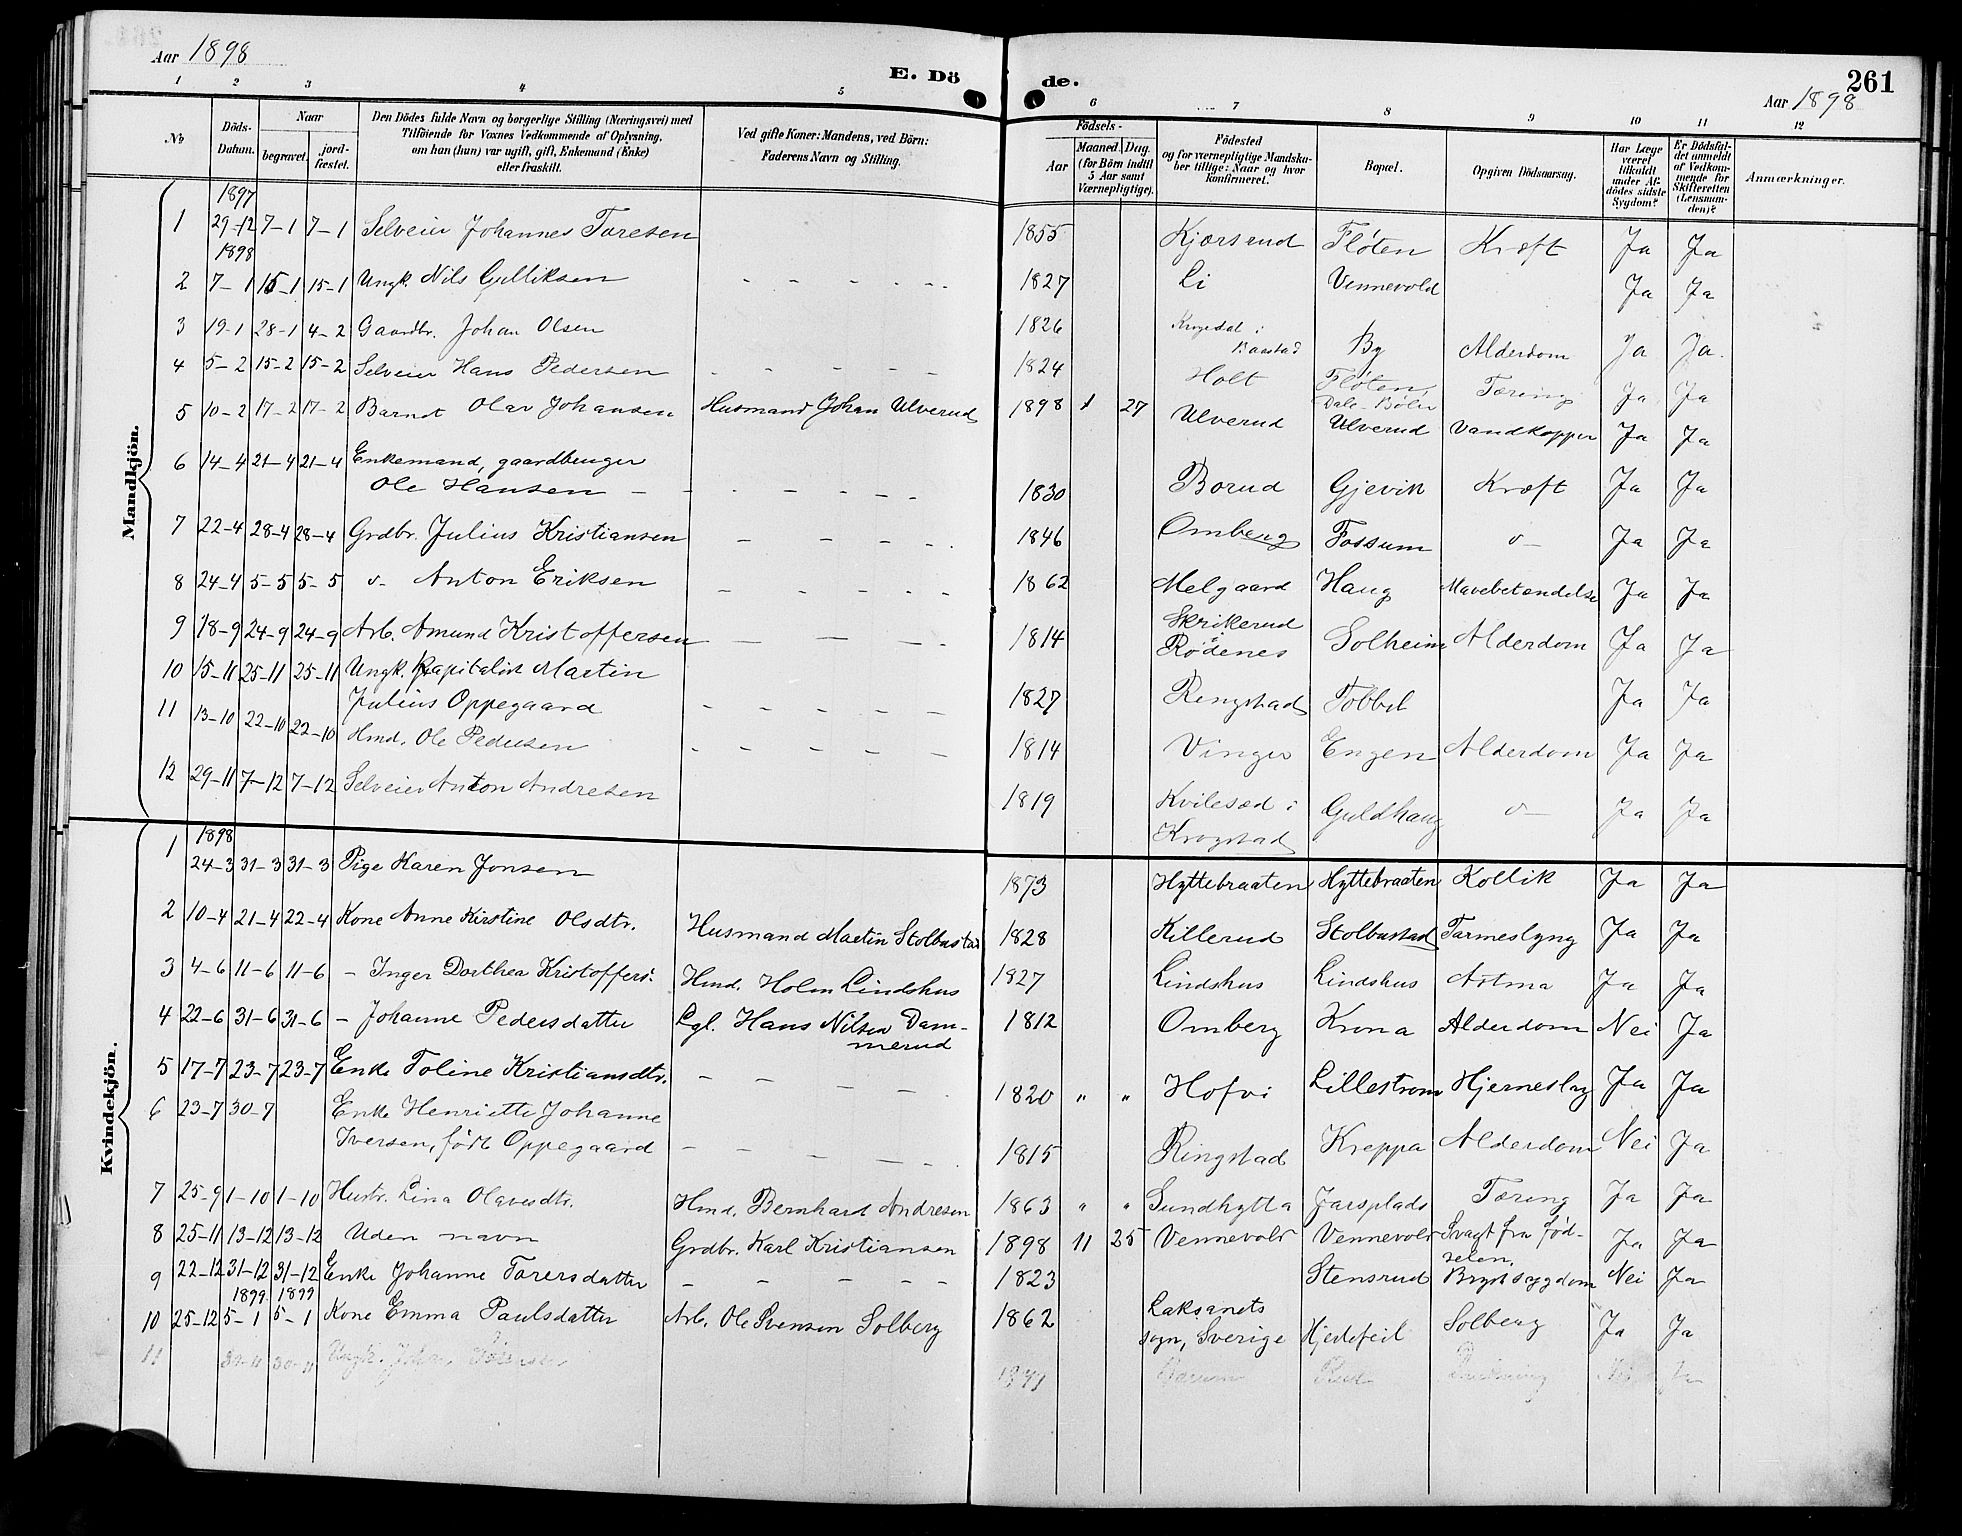 Aar 1898
E. Döde.
261
Aar 1898
1 2 3 4 5 6 7 8 9 10 11 12
No
Döds-Datum.
Naar
begravet.
jord-fæstet.
Den Dödes fulde Navn og borgerlige Stilling (Næringsvei) med
Tilföiende for Voxnes Vedkommende af Oplysning,
om han (hun) var ugift, gift, Enkemand (Enke)
eller fraskilt.
Ved gifte Koner: Mandens, ved Börn:
Faderens Navn og Stilling.
Födsels-
Aar
Maaned. Dag.
(for Börn indtil
5 Aar samt
Værnepligtige).
Födested
og for værnepligtige Mandska-
ber tillige: Naar og hvor
konfirmeret.
Bopæl.
Opgiven Dödsaarsag.
Har Læge
været
tilkaldt
under Af-
dödes sidste
Sygdom?
Er Dödsfal-
det anmeldt
af Vedkom-
mende for
Skifteretten
(Lensman-
den)?
Anmærkninger.
Mandkjön.
1897
1 29-12 7-1 7-1 Selveier Johannes Toresen 1855 Kjærsrud Fløten Kræft Ja Ja
1898
2 7-1 15-1 15-1 Ungk. Nils Gulliksen - - - - - 1827 Li Vennevold Ja Ja
3 19-1 28-1 4-2 Gaardbr. Johan Olsen 1826 i Baastad By Alderdom Ja Ja.
4 5-2 15-2 15-2 Selveier Hans Pedersen - - - - - 1824 Holt Fløten, Tæring Ja Ja
5 10-2 17-2 17-2 Barnet Olav Johansen Husmand Johan Ulverud 1898 1 27 Ulverud Ulverud Vandkopper Ja Ja
6 14-4 21-4 21-4 Enkemand, gaardbruger
Ole Hansen - - - - - - 1830 Borud Gjevik Kræft Ja Ja
7 22-4 28-4 28-4 Grdbr. Julius Kristiansen - - - - - 1846 Omberg Fossum v- Ja Ja
8 24-4 5-5 5-5 v- Anton Eriksen - - - - - 1862 Melgaard Haug Mavebetændelse Ja Ja
9 18-9 24-9 24-9 Arb. Amund Kristoffersen - - - - 1814 Skrikerud
i Rødenes Solheim Alderdom Ja Ja
10 15-11 25-11 25-11 Ungk. Kapitalist Martin
Julius Oppegaard - - - - - 1827 Ringstad Tobbel Ja Ja
11 13-10 22-10 22-10 Hmd. Ole Pedersen - - - - - 1814 Vinger Engen Alderdom Ja Ja
12 29-11 7-12 7-12 Selveier Anton Andresen 1819 Kvilesæd i
Krogstad Guldhaug v- Ja Ja
Kvindekjön.
1898
1 24-3 31-3 31-3 Pige Karen Jonsen 1873 Hyttebraaten Hyttebraaten Kollik Ja Ja
2 10-4 21-4 22-4 Kone Anne Kirstine Olsdtr. Husmand Martin Stolbustad 1828 Killerud Stolbustad Tarmeslyng Ja Ja
3 4-6 11-6 11-6 - Inger Dorthea Kristoffers. Hmd. Holm Lindshus 1827 Lindshus Lindshus Astma Ja Ja
4 22-6 31-6 31-6 - Johanne Pedersdatter Lgl. Hans Nilsen Dam-
merud 1812 Omberg Krona Alderdom Nei Ja
5 17-7 23-7 23-7 Enke Toline Kristiansdtr. - - - - 1820 " " Hofvi Lillestrøm Hjerneslag Ja Ja
6 23-7 30-7 Enke Henriette Johanne
Iversen, født Oppegaard - - - - - 1815 Ringstad Kreppa Alderdom Nei Ja
7 25-9 1-10 1-10 Hustr. Lina Olavesdtr. Hmd. Bernhard Andresen 1863 " " Sundhytta Jarsplads Tæring Ja Ja
8 25-11 13-12 13-12 Uden navn Grdbr. Karl Kristiansen 1898 11 25 Vennevold Vennevold Svagt fra fød-
selen, Ja Ja
9 22-12 31-12 31-12 Enke Johanne Torersdatter - - - - - 1823 Stensrud Brystsygdom Nei Ja
1899 1899
10 25-12 5-1 5-1 Kone Emma Paulsdatter Arb. Ole Svensen Solberg 1862 Laksanets
sogn, Sverige Solberg Ja Ja
11 30-11 Ungk. Johan Ja